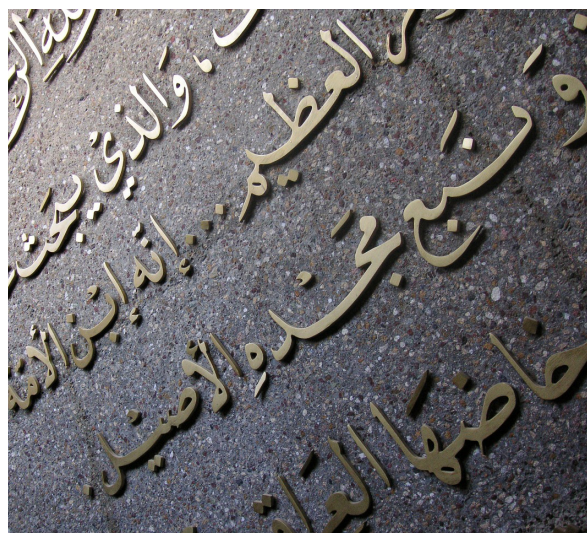 وَالذيْ يبحث
العظيم ... إنّه ابْن الأمة
وَنَبع مَجْدِهِ الأَصيْل.
خاضَهَا